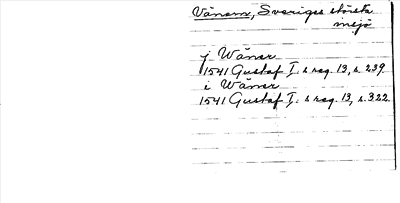 Vänern, Sveriges största
insjö
j Wäner
1541 Gustaf I:s reg. 13, s. 239.
i Wäner
1541 Gustaf I:s reg. 13, s. 322.